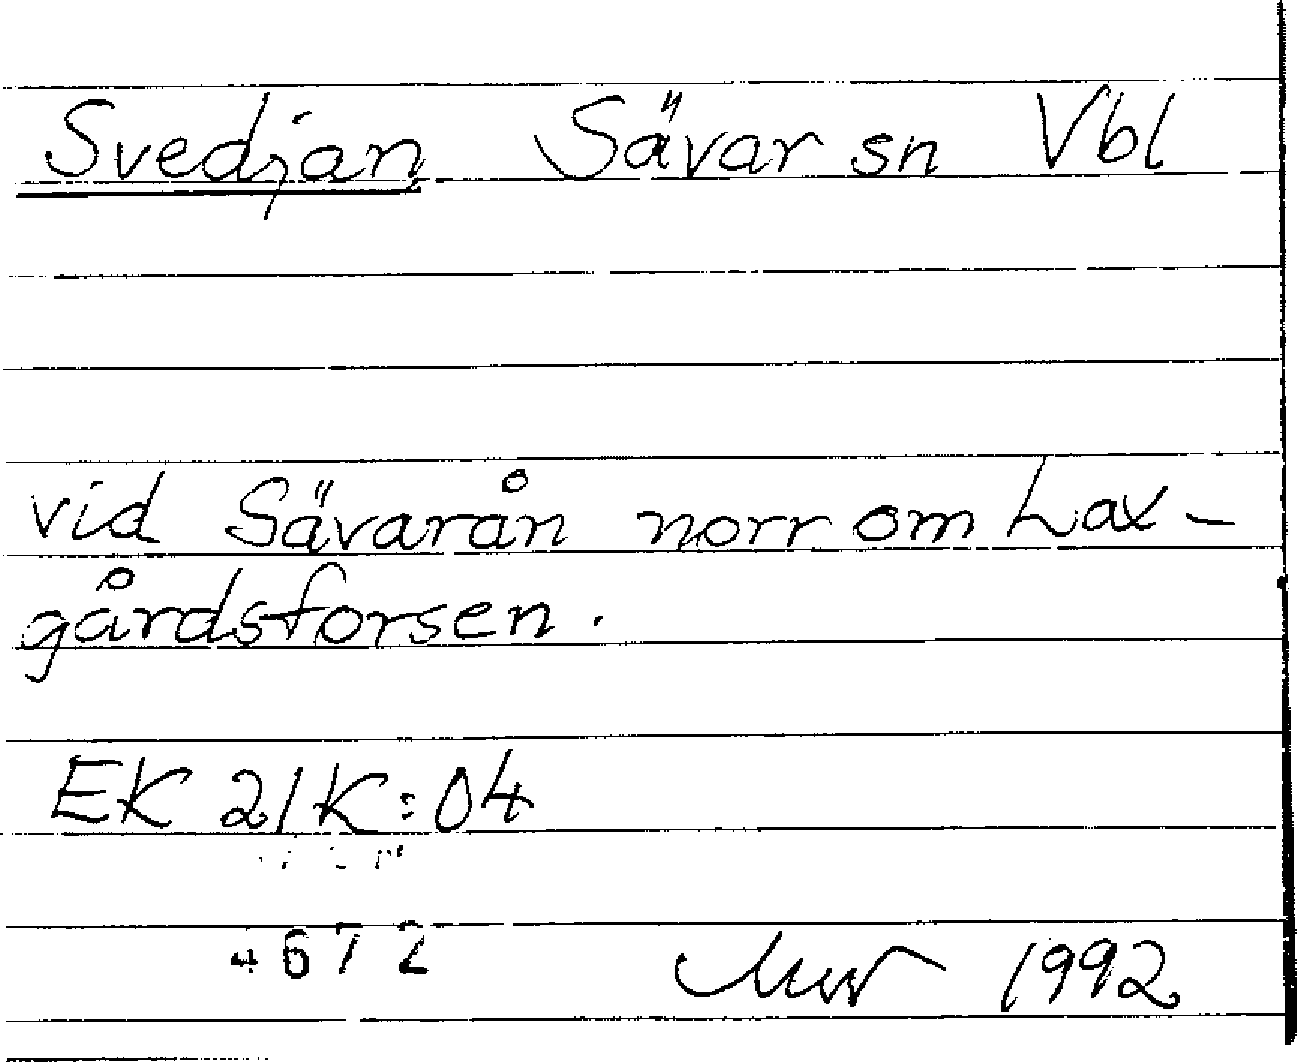 Svedjan Sävar sn Vbl
vid Sävarån norr om Lax-
gårdsforsen.
EK 21K:04
4672 1992